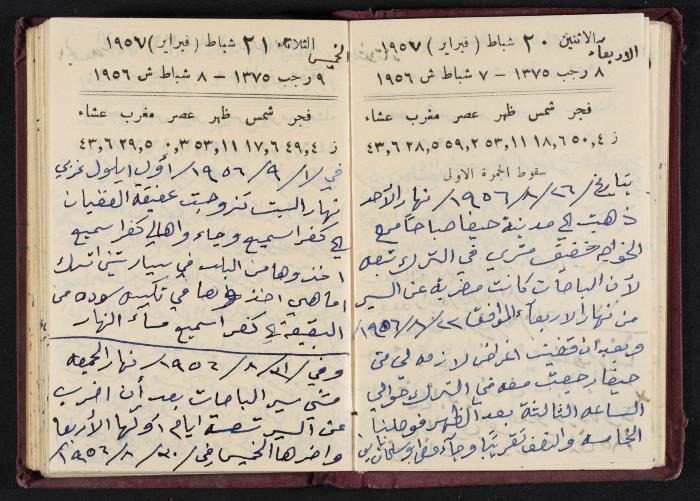 الاربعاء
والاثنين ٢٠ شباط ( فبراير ) ١٩٥٧
٨ رجب ١٣٧٥ – ٧ شباط ش ١٩٥٦
فجر شمس ظهر عصر مغرب عشاء
ز ٥٠,٤ ١٨,٦ ٥٣,١١ ٥٩,٢ ٢٨,٥ ٤٣,٦
سقوط الجمرة الاولى
بتاريخ /٢٦ /٨ /١٩٥٦ نهار الأحد
ذهبت لمدينة حيفا صباحاً مع
الخواجه متري في الترك شعه
لأن الباصات كانت مضربة عن السير
من نهار الاربعاء الموافق ٢٢ /٨ /١٩٥٦
وبعد ان قضيت اغراض لازمه لي من
حيفا رجعت معه في الترك حوالي
الساعه الثالثة بعد الظهر فوصلنا
الخامسه والنصف تقريبًا وجاء معي
الخميس
الثلاثاء ٢١ شباط ( فبراير ) ١٩٥٧
٩ رجب ١٣٧٥ – ٨ شباط ش ١٩٥٦
فجر شمس ظهر عصر مغرب عشاء
ز ٤٩,٤ ١٧,٦ ٥٣,١١ ٠,٣ ٢٩,٥ ٤٣,٦
في /١ /٩ /١٩٥٦ / أول ايلول غربي
نهار السبت تزوجت عفيفة
في كفر اسميع وجاء واهالي كفر اسميع
اخذوها من البلد في سيارتين اترك
اما هي اخذوها في تكسيه سوده من
البقيعة لـ كفر اسميع مساء النهار
وفي /٣١ /٨ /١٩٥٦ نهار الجمعه
مشى سير الباصات بعد أن اضرب
عن السير تسعة ايام اولها الأربعا
واخرها الخميس في /٣٠ /٨ /١٩٥٦